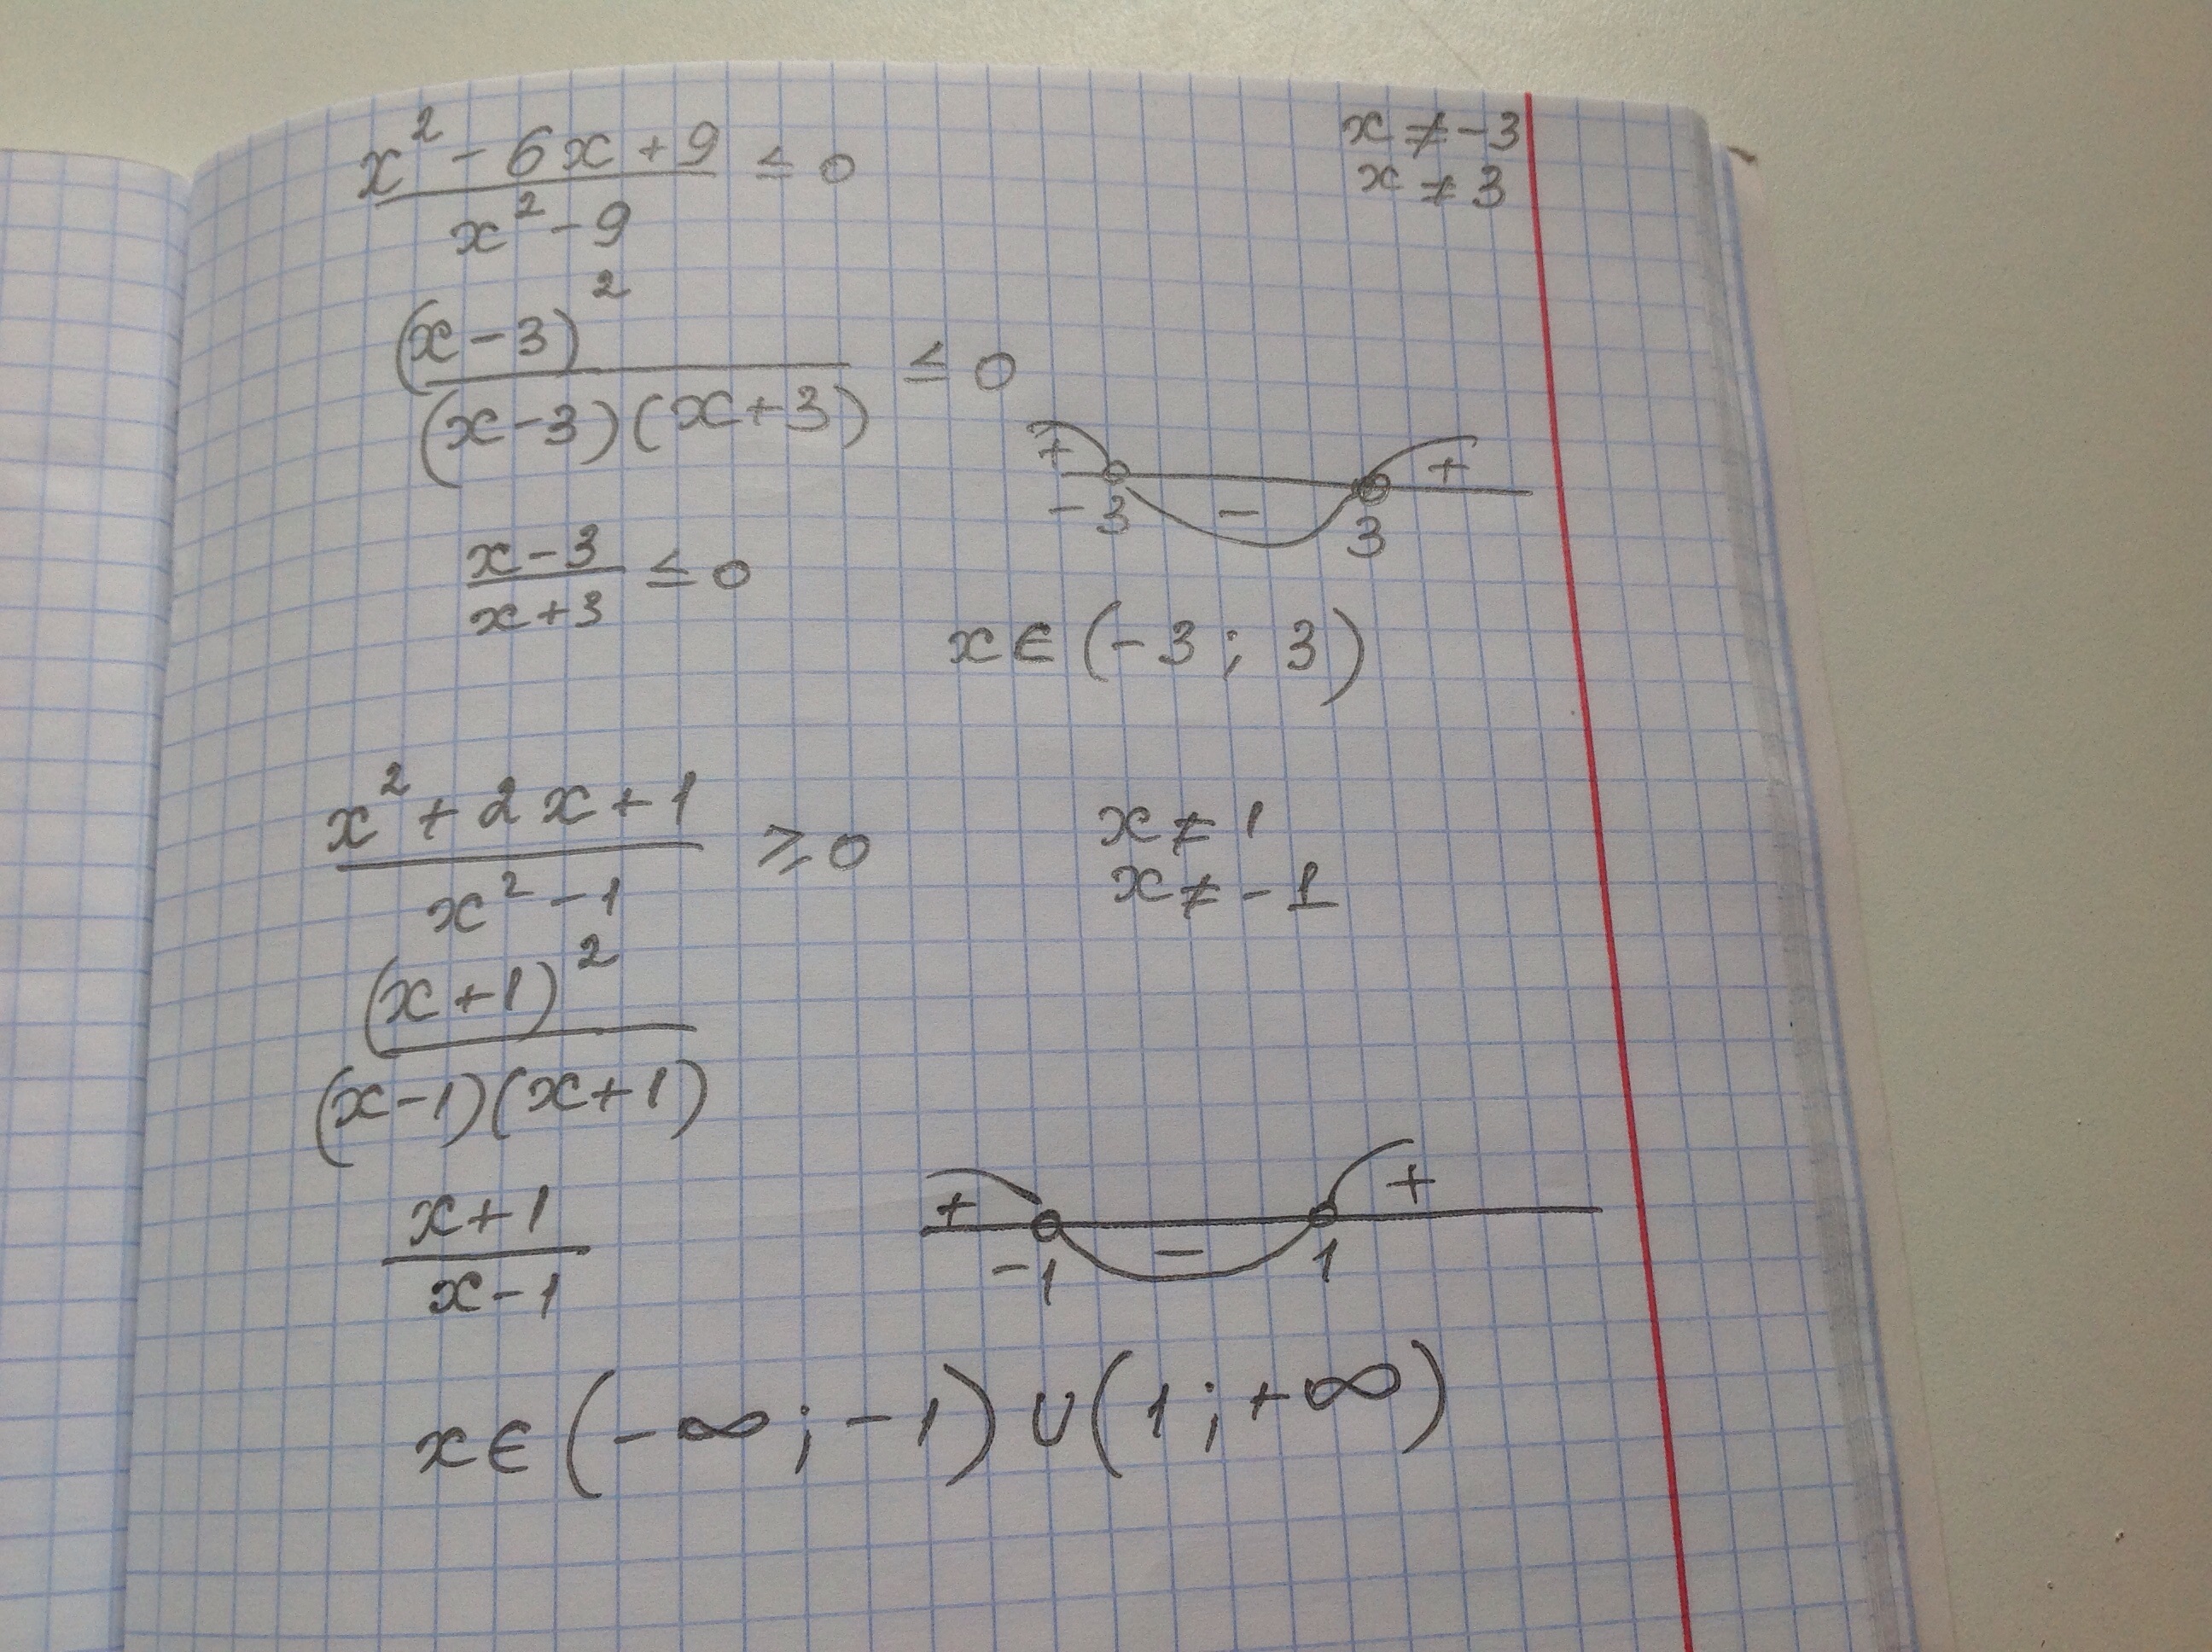 x² - 6x + 9 ≤ 0
x² - 9
x ≠ -3
x ≠ 3
(x - 3)² ≤ 0
(x - 3)(x + 3)
+ - +
-3 3
x - 3 ≤ 0
x + 3
x ∈ (-3; 3)
x² + 2x + 1 ≥ 0
x² - 1
x ≠ 1
x ≠ -1
(x + 1)²
(x - 1)(x + 1)
x + 1
x - 1
+ - +
-1 1
x ∈ (-∞; -1) ∪ (1; +∞)